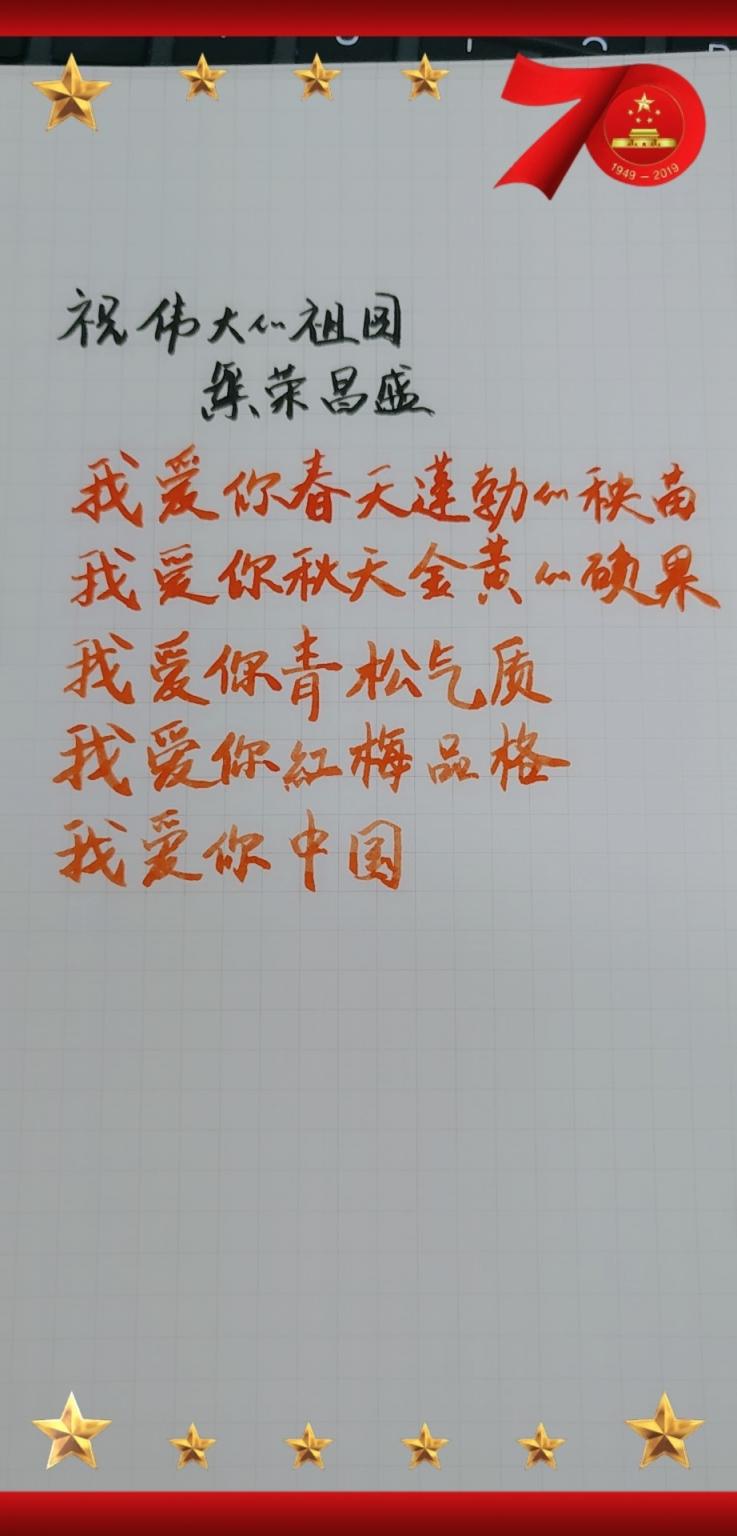 70
1949 — 2019
祝伟大的祖国
繁荣昌盛
我爱你春天蓬勃的秧苗
我爱你秋天金黄的硕果
我爱你青松气质
我爱你紅梅品格
我爱你中国